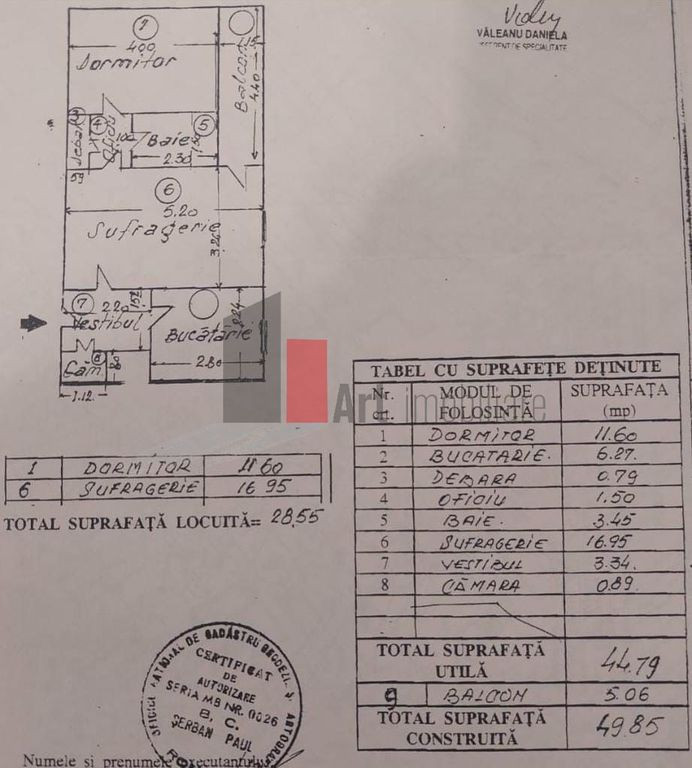 Valeu
VĂLEANU DANIELA
1
400
Dormitor
Balcon
1.15
4.40
3
Debara
4
Oficiu
1.00
Baie
5
1.50
2.30
59
6
5.20
Sufragerie
3.26
7
2.20
1.52
Vestibul
Bucătărie
2.24
2.80
8
Căm
80
1.12
Art Imobiliare
1 DORMITOR 11.60
6 SUFRAGERIE 16.95
TOTAL SUPRAFAŢĂ LOCUITĂ= 28,55
TABEL CU SUPRAFEŢE DEŢINUTE
Nr. crt. MODUL DE FOLOSINŢĂ SUPRAFAŢA (mp)
1 DORMITOR 11.60
2 BUCATARIE. 6.27.
3 DEBARA 0.79
4 OFICIU 1.50
5 BAIE. 3.45
6 SUFRAGERIE 16.95
7 VESTIBUL 3.34.
8 CĂMARA 0.89.
TOTAL SUPRAFAŢĂ UTILĂ 44.79
9 BALCON 5.06
TOTAL SUPRAFAŢĂ CONSTRUITĂ 49.85
CERTIFICAT
DE
AUTORIZARE
SERIA MB NR. 0026
B, C,
ŞERBAN PAUL
Numele si prenumele executantului